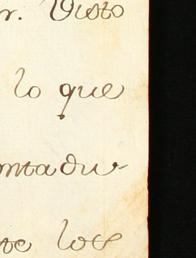 r. Visto
lo que
ntadu-
te los